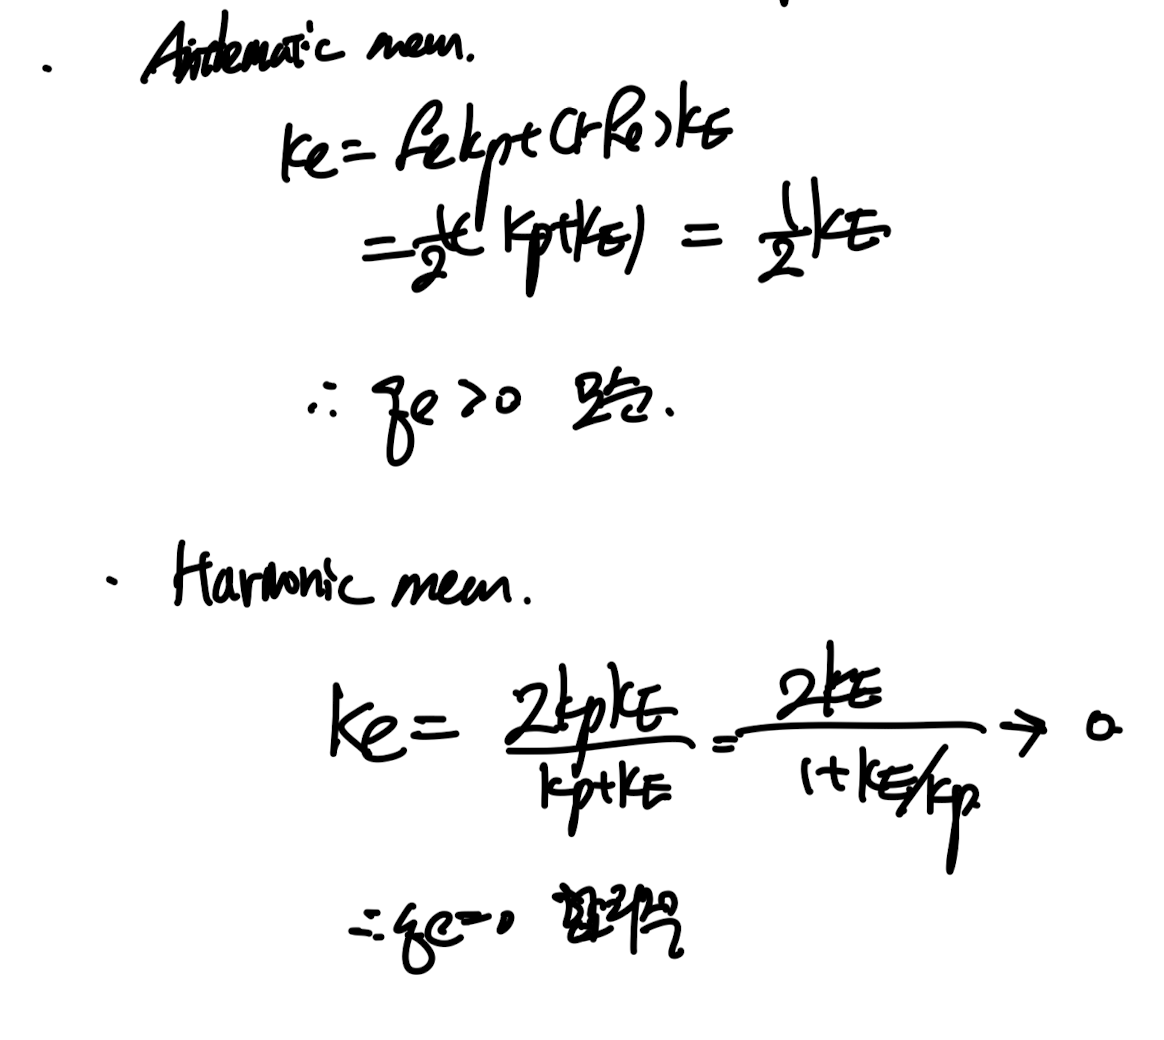 · Arithematic mean.
ke = fe kp + (1-fe) kE
= 1/2 ( kp + kE ) = 1/2 kE
∴ qe > 0 모순.
· Harmonic mean.
ke = 2kpkE / kp+kE = 2kE / 1+kE/kp → 0
∴ qe = 0 합리적